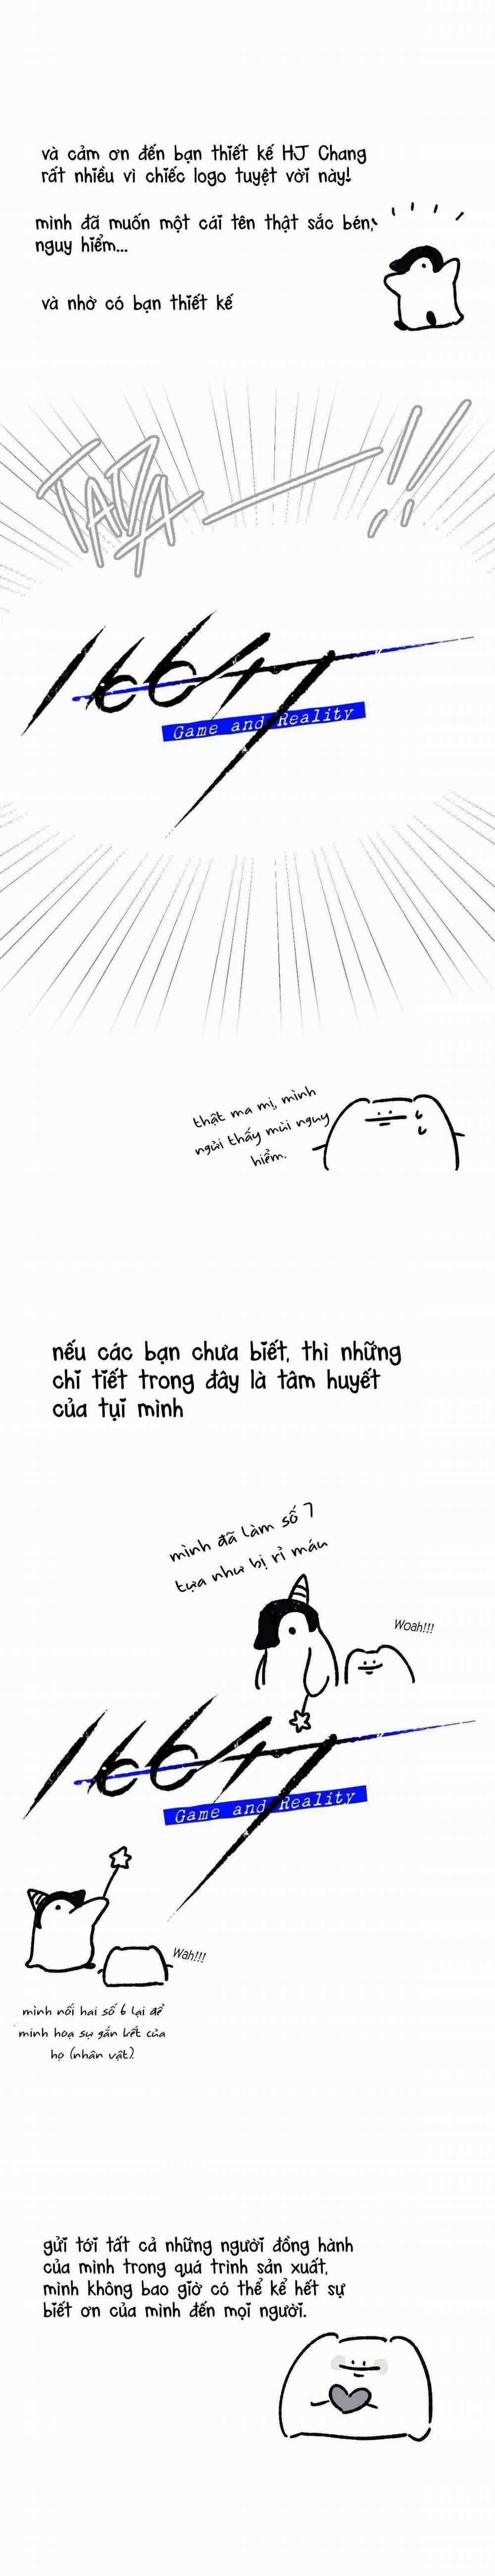 và cảm ơn đến bạn thiết kế HJ Chang
rất nhiều vì chiếc logo tuyệt vời này!
mình đã muốn một cái tên thật sắc bén,
nguy hiểm...
và nhờ có bạn thiết kế
TADA!!
16647
Game and Reality
thật ma mị, mình
ngửi thấy mùi nguy
hiểm.
nếu các bạn chưa biết, thì những
chi tiết trong đây là tâm huyết
của tụi mình
mình đã làm số 7
tựa như bị rỉ máu
Woah!!!
16647
Game and Reality
Wah!!!
mình nối hai số 6 lại để
minh hoạ sự gắn kết của
họ (nhân vật).
gửi tới tất cả những người đồng hành
của mình trong quá trình sản xuất,
mình không bao giờ có thể kể hết sự
biết ơn của mình đến mọi người.